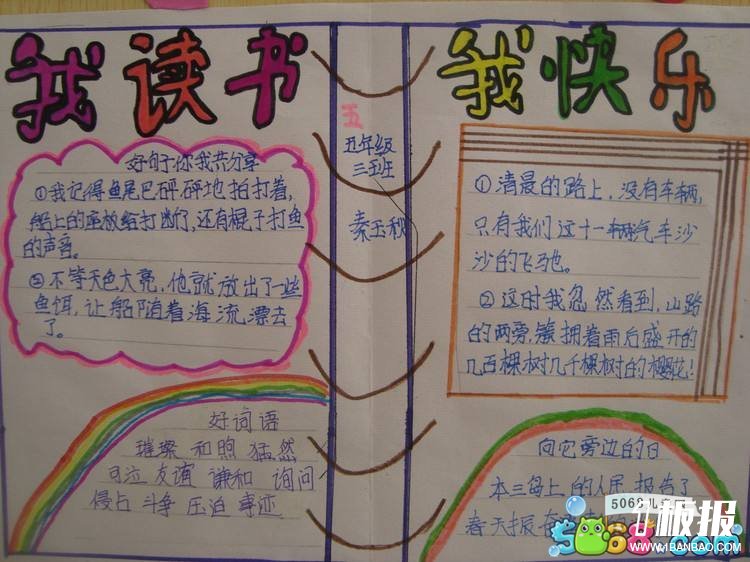 我读书
好句子你我共分享
①我记得鱼尾巴砰砰地拍打着,
船上的座板给打断了,还有棍子打鱼
的声音。
②不等天色大亮,他就放出了一些
鱼饵,让船随着海流漂去
了。
好词语
璀璨 和煦 猛然
可泣 友谊 谦和 询问
侵占 斗争 压迫 事迹
五
五年级
三班
秦玉秋
我快乐
①清晨的路上,没有车辆,
只有我们这十一辆汽车沙
沙的飞驰。
②这时我忽然看到,山路
的两旁,簇拥着雨后盛开的
几百棵树几千棵树的樱花!
向它旁边的日
本三岛上的人民报告了
春天
5068儿童网
1板报
WWW.1BANBAO.COM
5068.com